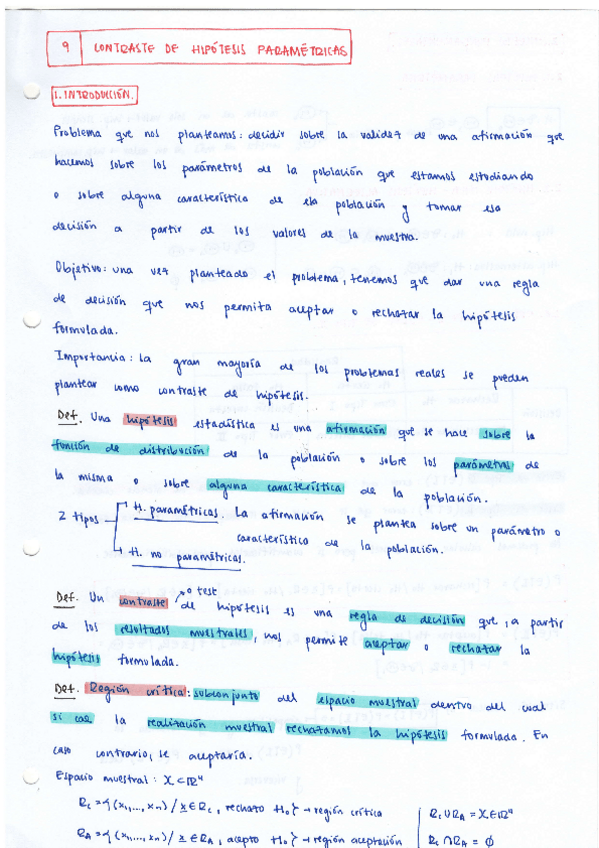 9 CONTRASTE DE HIPÓTESIS PARAMÉTRICAS
1. INTRODUCCIÓN.
Problema que nos planteamos: decidir sobre la validez de una afirmación que
hacemos sobre los parámetros de la población que estamos estudiando
o sobre alguna característica de ela población y tomar esa
decisión a partir de los valores de la muestra.
Objetivo: una vez planteado el problema, tenemos que dar una regla
de decisión que nos permita aceptar o rechazar la hipótesis
formulada.
Importancia: La gran mayoría de los problemas reales se pueden
plantear como contraste de hipótesis.
Def. Una hipótesis estadística es una afirmación que se hace sobre la
función de distribución de la población o sobre los parámetros de
la misma o sobre alguna característica de la población.
2 tipos → H. paramétricas. La afirmación se plantea sobre un parámetro o
característica de la población.
→ H. no paramétricas.
Def. Un contraste → o test de hipótesis es una regla de decisión que, a partir
de los resultados muestrales, nos permite aceptar o rechazar la
hipótesis formulada.
Def. Región crítica: subconjunto del espacio muestral dentro del cual
si cae la realización muestral rechazamos la hipótesis formulada. En
caso contrario, se aceptaría.
Espacio muestral: X ⊂ ℝⁿ
Rc = {(x₁,...,xn) / x ∈ Rc, rechazo H₀} → región crítica | Rc ∪ RA = X ∈ ℝⁿ
RA = {(x₁,...,xn) / x ∈ RA, acepto H₀} → región aceptación | Rc ∩ RA = ∅